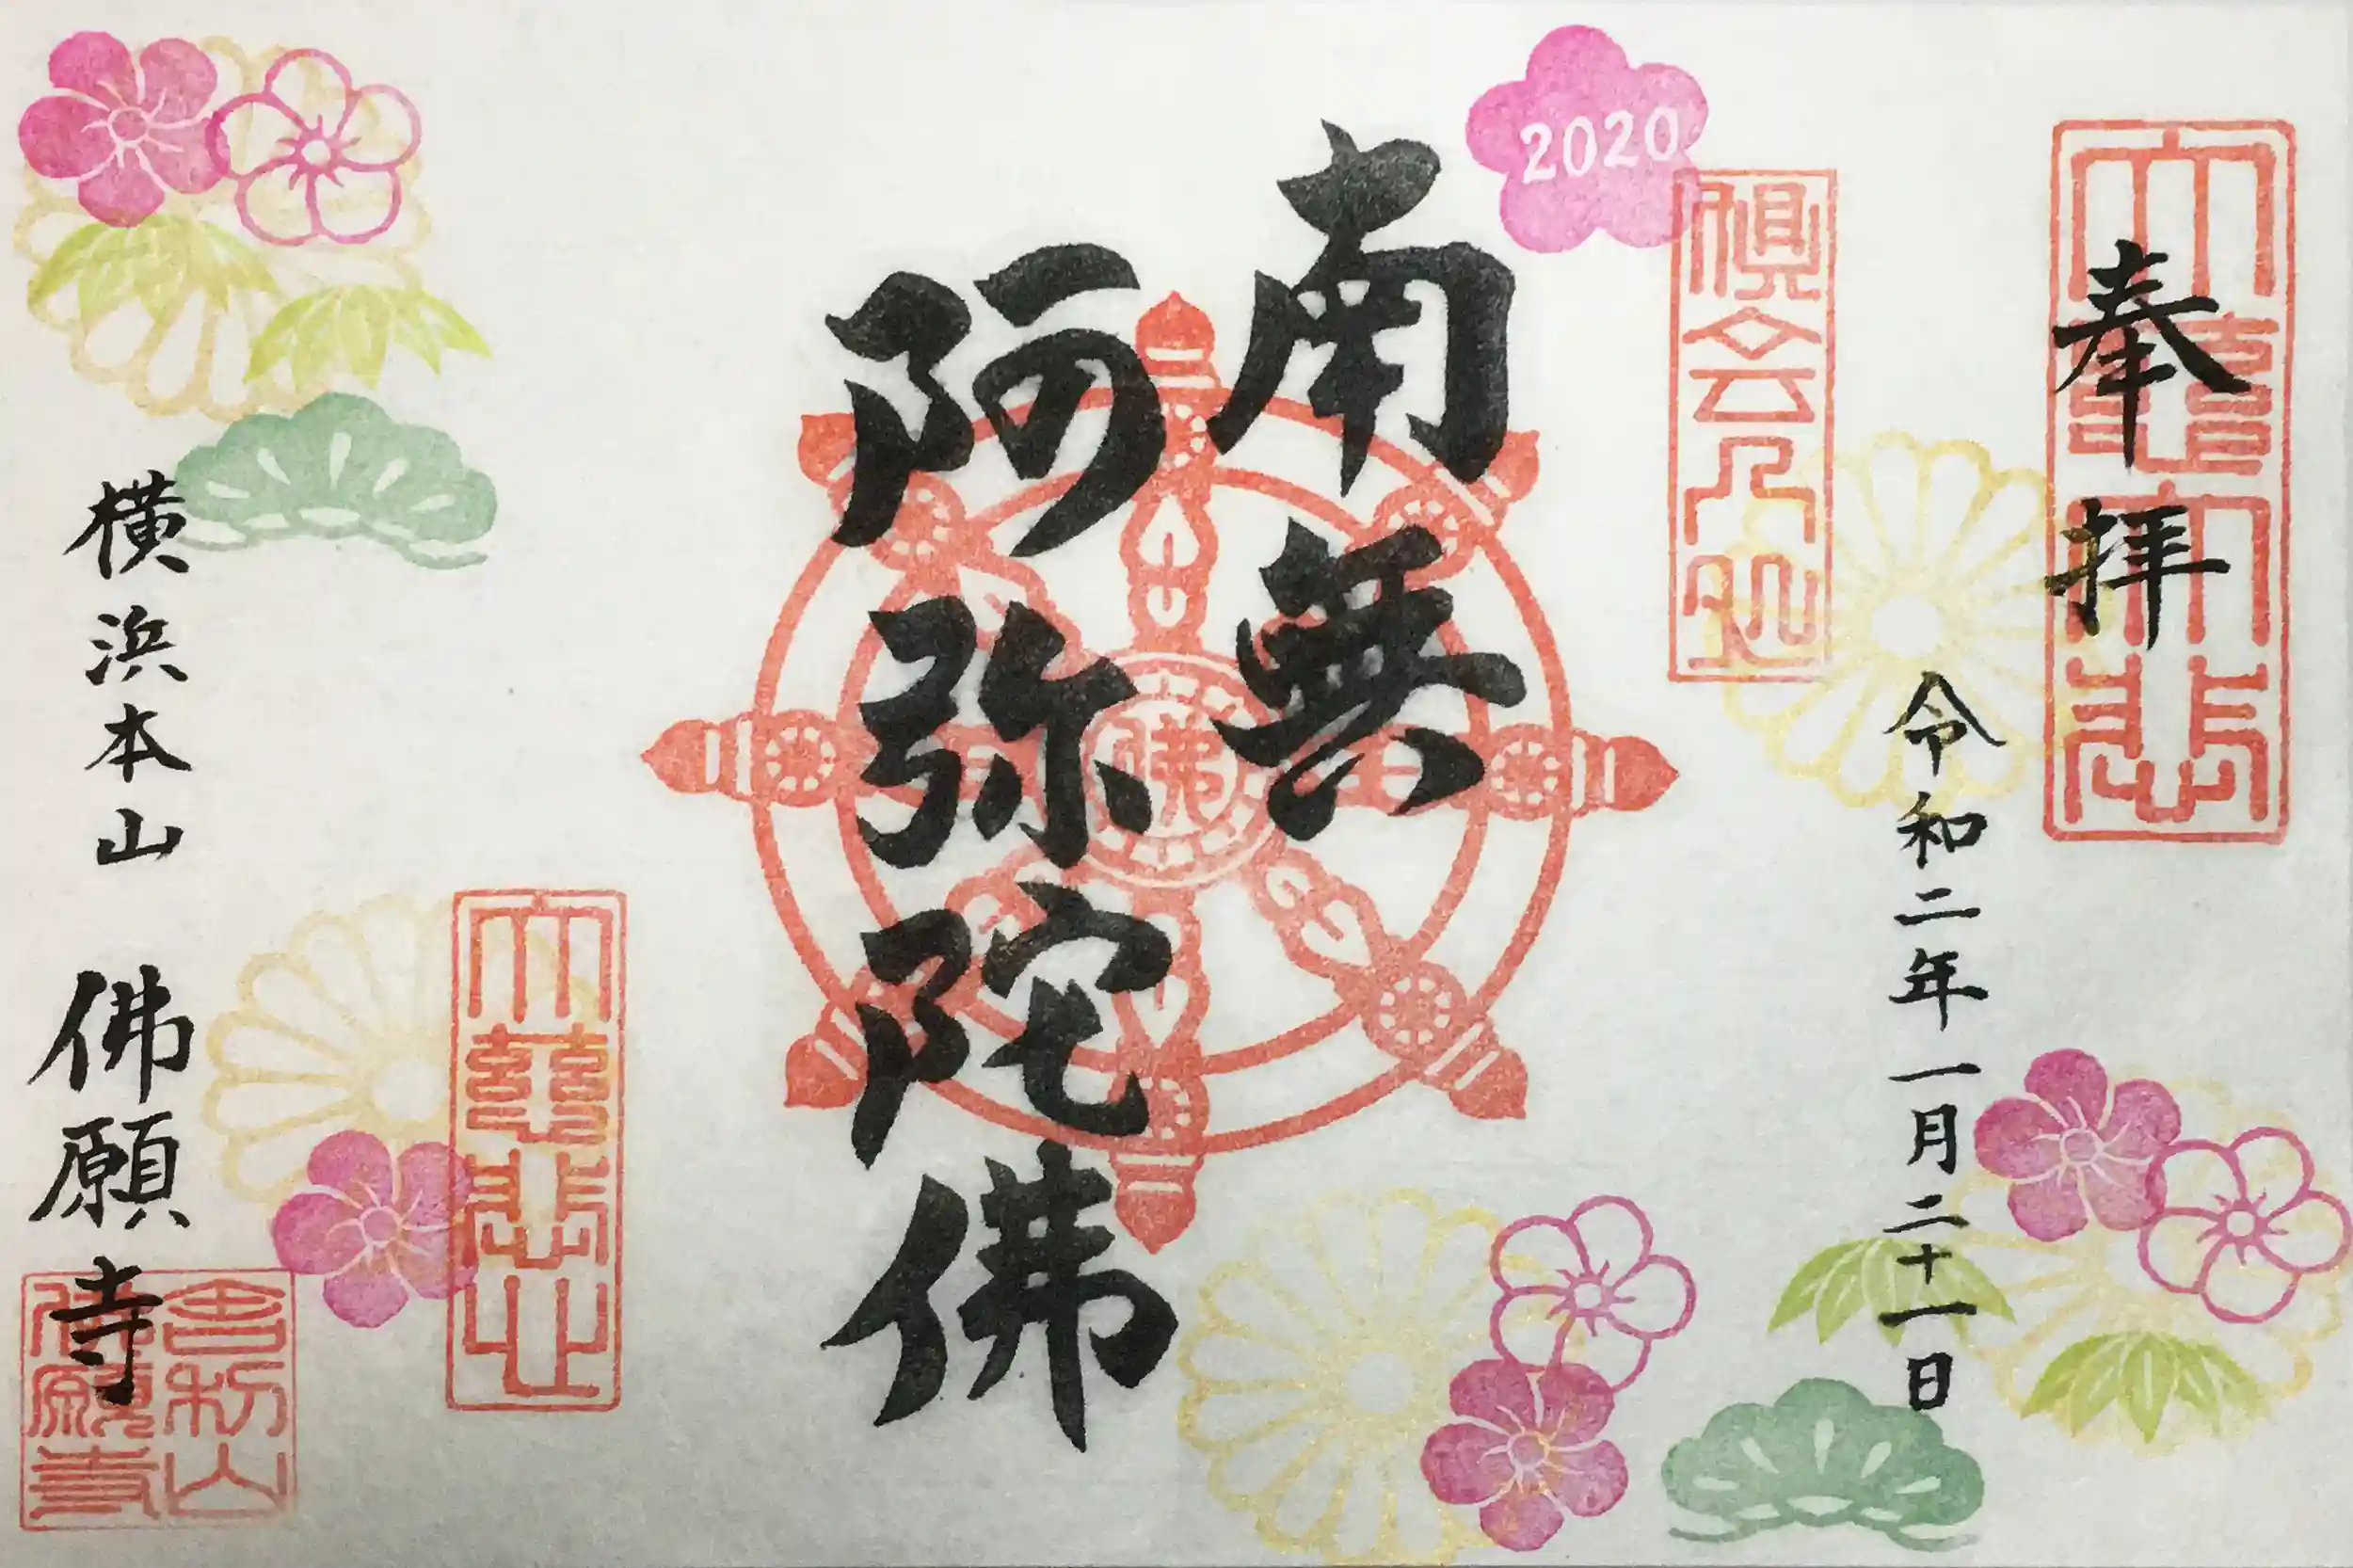 奉拝
令和二年一月二十一日
2020
南無
阿弥陀佛
横浜本山 佛願寺
舎利山
佛願寺
佛